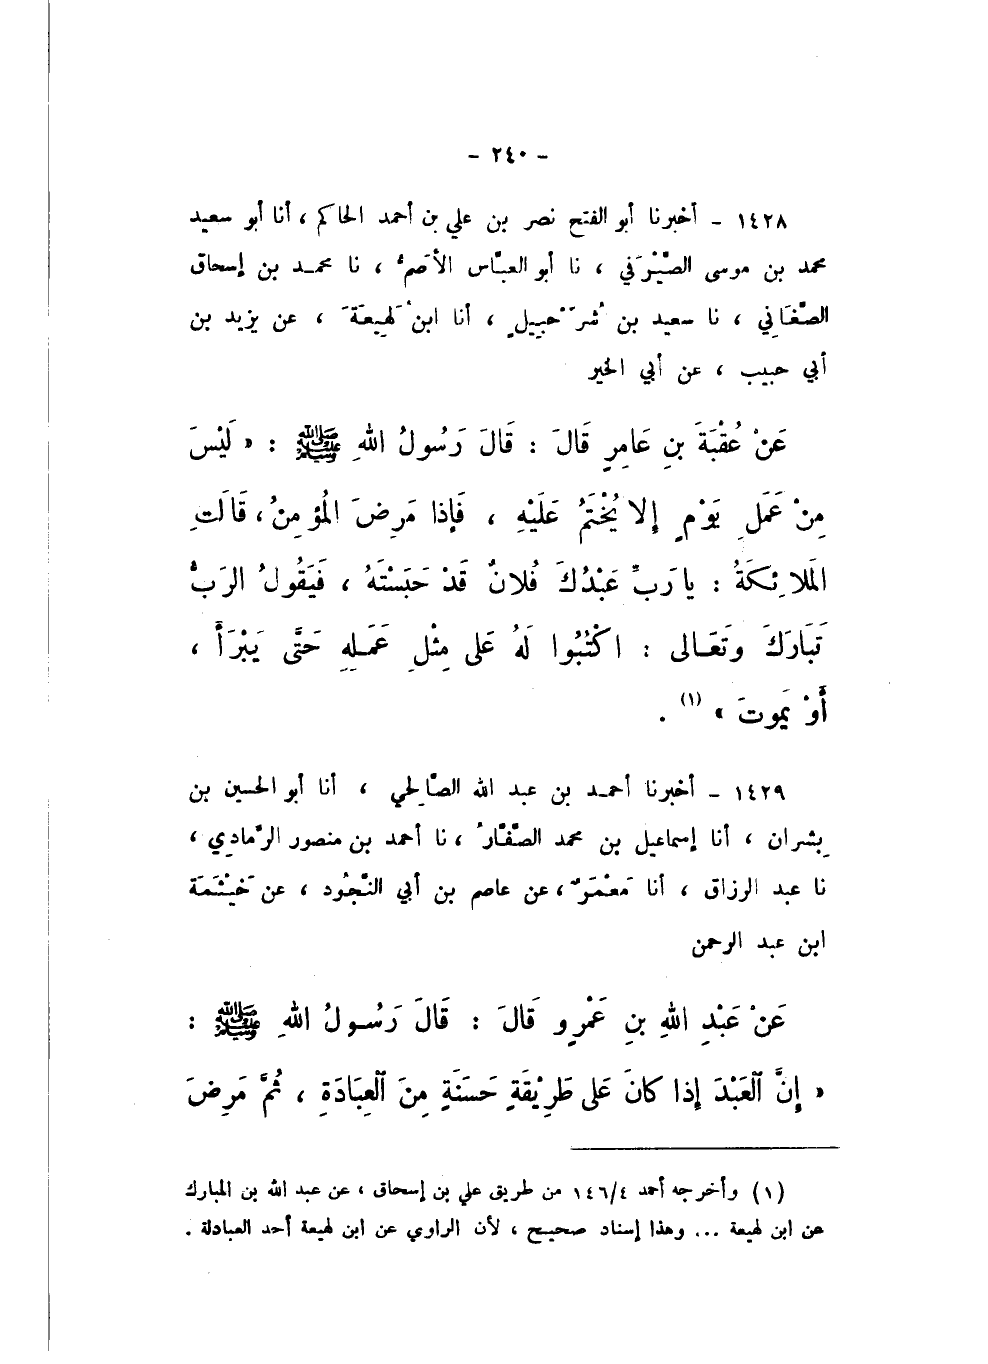 - ٢٤٠ -
١٤٢٨ - أخبرنا أبو الفتح نصر بن علي بن أحمد الحاكم ، أنا أبو سعيد
محمد بن موسى الصَّيْرَفي ، نا أبو العبَّاس الأَصمُّ ، نا محمد بن إسحاق
الصَّغَانِي ، نا سعيد بن شُرَحْبِيلٍ ، أنا ابنُ لَهِيعَةَ ، عن يزيد بن
أبي حبيب ، عن أبي الخير
عَنْ عُقْبَةَ بنِ عَامِرٍ قَالَ : قَالَ رَسُولُ اللهِ ﷺ : « لَيْسَ
مِنْ عَمَلِ يَوْمٍ إِلا يُخْتَمُ عَلَيْهِ ، فَإِذا مَرِضَ المُؤْمِنُ ، قَالَتِ
المَلائِكَةُ : يا رَبِّ عَبْدُكَ فُلانٌ قَدْ حَبَسْتَهُ ، فَيَقُولُ الرَبُّ
تَبَارَكَ وَتَعَالى : اكْتُبُوا لَهُ عَلى مِثْلِ عَمَلِهِ حَتَّى يَبْرَأَ ،
أَوْ يَموتَ » (١) .
١٤٢٩ - أخبرنا أحمد بن عبد الله الصَّالِحي ، أنا أبو الحسين بن
بِشران ، أنا إسماعيل بن محمد الصَّفَّارُ ، نا أحمد بن منصور الرَّمادِي ،
نا عبد الرزاق ، أنا مَعْمَرٌ ، عن عاصم بن أبي النَّجُود ، عن خَيْثَمَة
ابن عبد الرحمن
عَنْ عَبْدِ اللهِ بنِ عَمْرٍو قَالَ : قَالَ رَسُولُ اللهِ ﷺ :
« إِنَّ ٱلعَبْدَ إِذا كانَ عَلى طَرِيْقَةٍ حَسَنَةٍ مِنَ ٱلعِبَادَةِ ، ثُمَّ مَرِضَ
(١) وأخرجه أحمد ١٤٦/٤ من طريق علي بن إسحاق ، عن عبد الله بن المبارك
عن ابن لهيعة ... وهذا إسناد صحيح ، لأن الراوي عن ابن لهيعة أحد العبادلة .